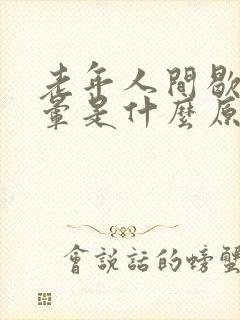 老年人間歇
暈是什麼原
會說話的螃蟹